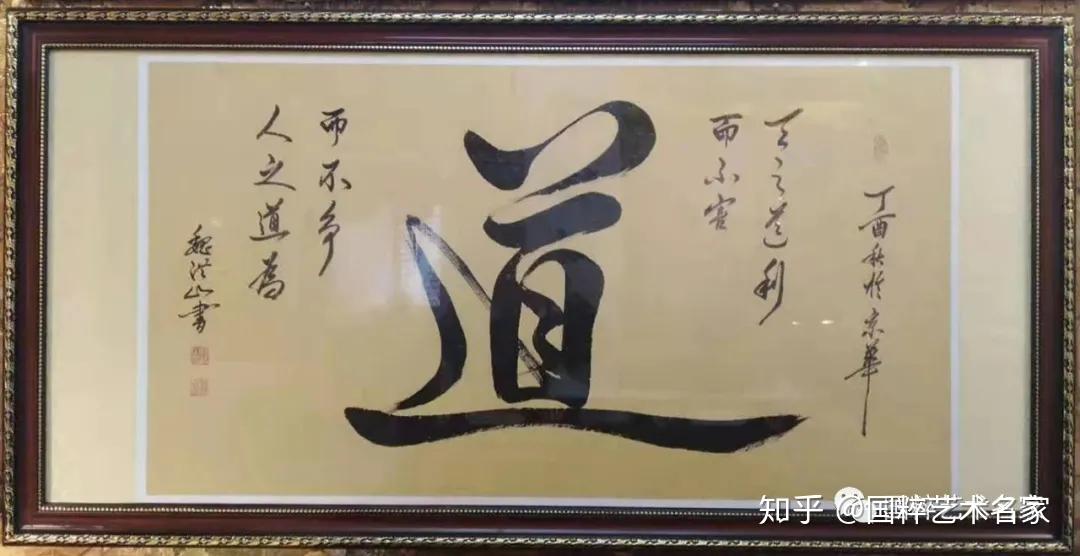 丁酉秋於京華
天之道利
而不害
道
人之道為
而不争
魏洪山書
知乎 @国粹艺术名家